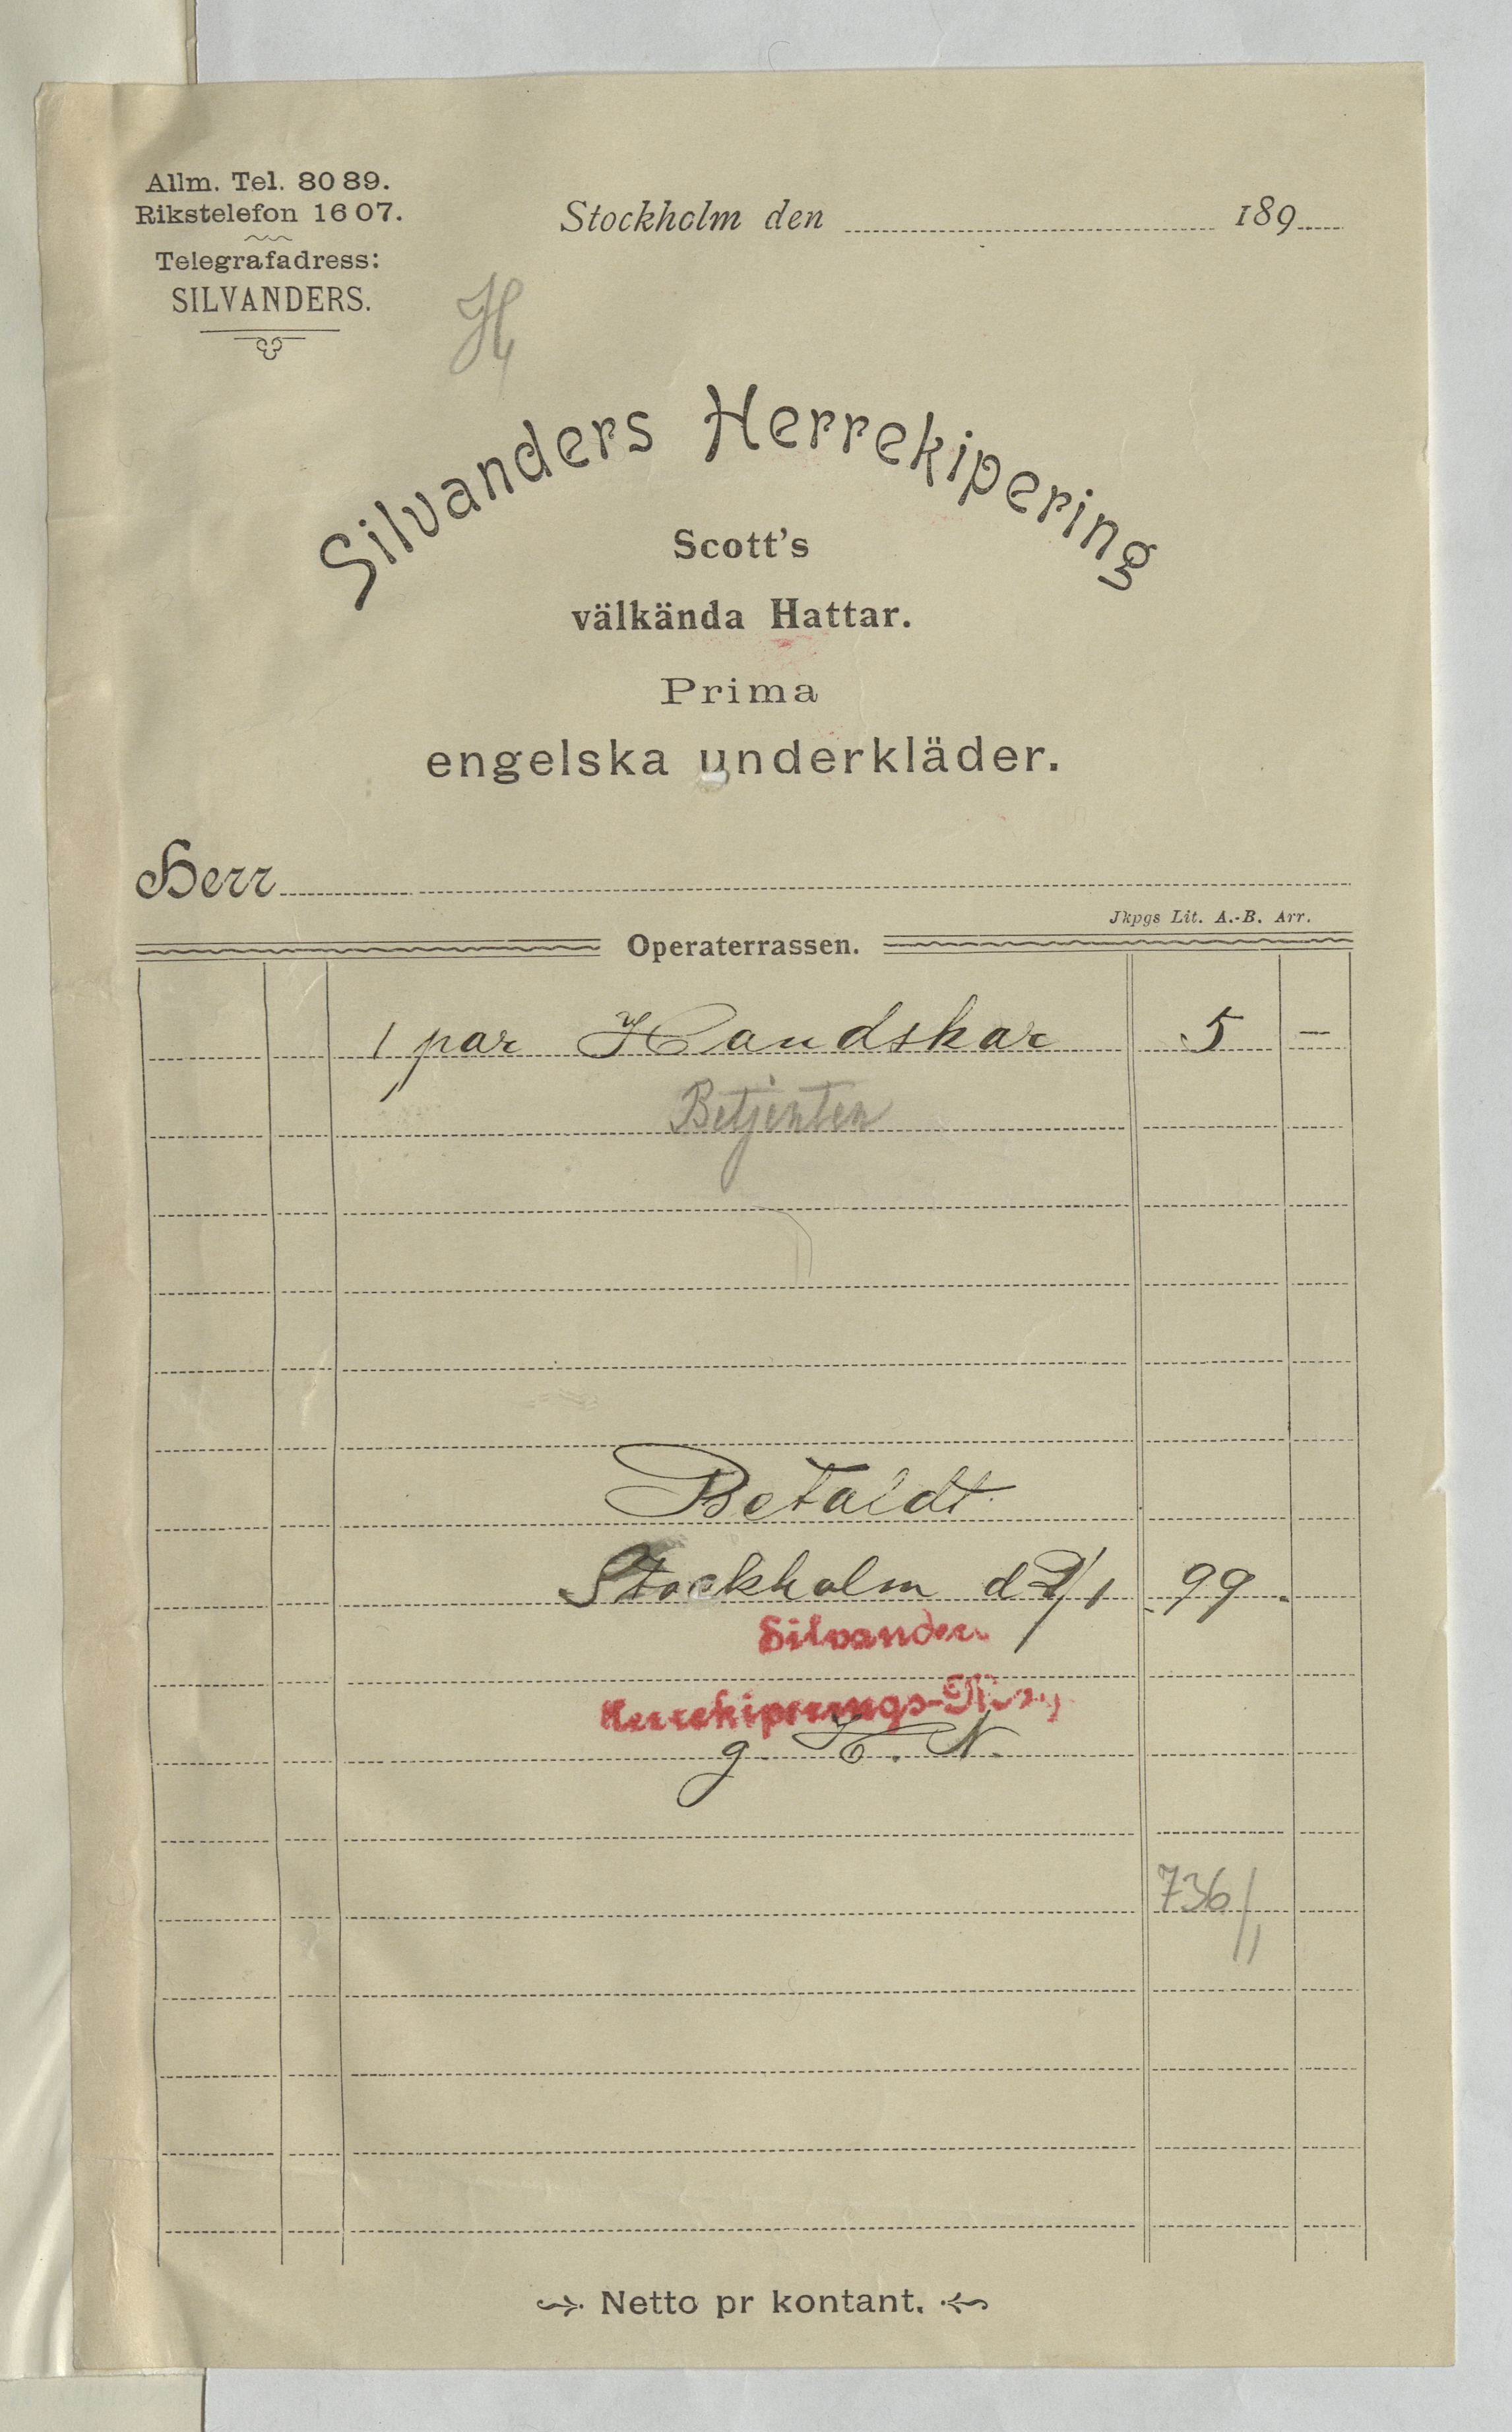 Allm. Tel. 80 89.
Rikstelefon 16 07.
Telegrafadress:
SILVANDERS.
Stockholm den 189
H
Silvanders Herrekipering
Scott's
välkända Hattar.
Prima
engelska underkläder.
Herr
Jkpgs Lit. A.-B. Arr.
Operaterrassen.
1 par Handskar 5 —
Betjenten
Betaldt
Stockholm d 2/1 99
Silvanders
Herrekiperings-
g. H. N.
736
Netto pr kontant.